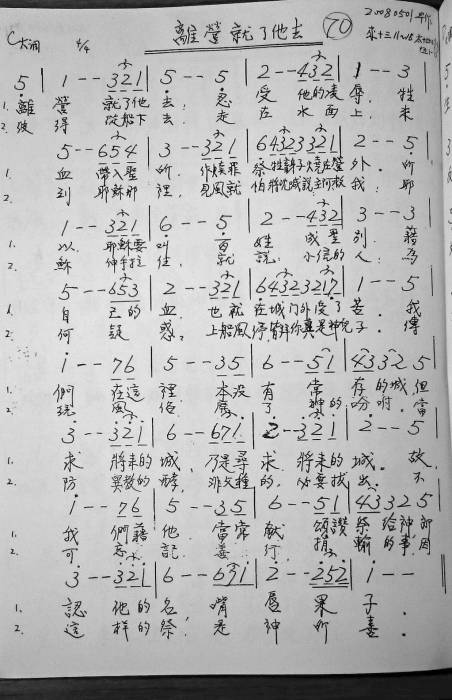 離營就了他去 70 20080501
C大調 4/4 來十三11~16
5 | 1 -- 321 | 5 -- 5 | 2 -- 432 | 1 -- 3
1. 離 營 就了他 去, 忍 受 他的凌 辱, 牲
2. 彼 得 從船下 去, 走 在 水面 上, 來
5 -- 654 | 3 -- 321 | 64323321 | 2 -- 5
1. 血 帶入聖 所, 作贖罪 祭牲身子燒在營 外. 所
2. 到 耶穌那 裡, 見風就 我. 耶
1 -- 321 | 6 -- 5 | 2 -- 432 | 3 -- 3
1. 以 耶穌要 叫 百 姓 成聖 別, 藉
2. 穌 伸手拉 住, 就 說: 小信的 人, 為
5 -- 653 | 2 -- 321 | 64323217 | 1 -- 5
1. 自 己的 血, 也就 在城門外受了 苦. 我
2. 何 疑 惑, 上船風 子. 傳
1 -- 76 | 5 -- 35 | 6 -- 51 | 4332 5
1. 們 在這 裡 本沒 有 常 存的城, 但
2. 吩咐, 當
3 -- 321 | 6 -- 671 | 2 -- 321 | 2 -- 5
1. 求 將來的 城, 乃是尋 求 將來的 城. 故
2. 防 異教的 酵, 的, 必要拔 出. 不
1 -- 76 | 5 -- 35 | 6 -- 51 | 4332 5
1. 我 們藉 他, 當常 獻 頌讚 祭 給神, 即
2. 可 忘 記 善 行, 捐 輸 的事, 因
3 -- 321 | 6 -- 671 | 2 -- 252 | 1 --
1. 認 他的 名, 嘴 唇 果 子.
2. 這 樣的 祭, 是 神 所 喜.